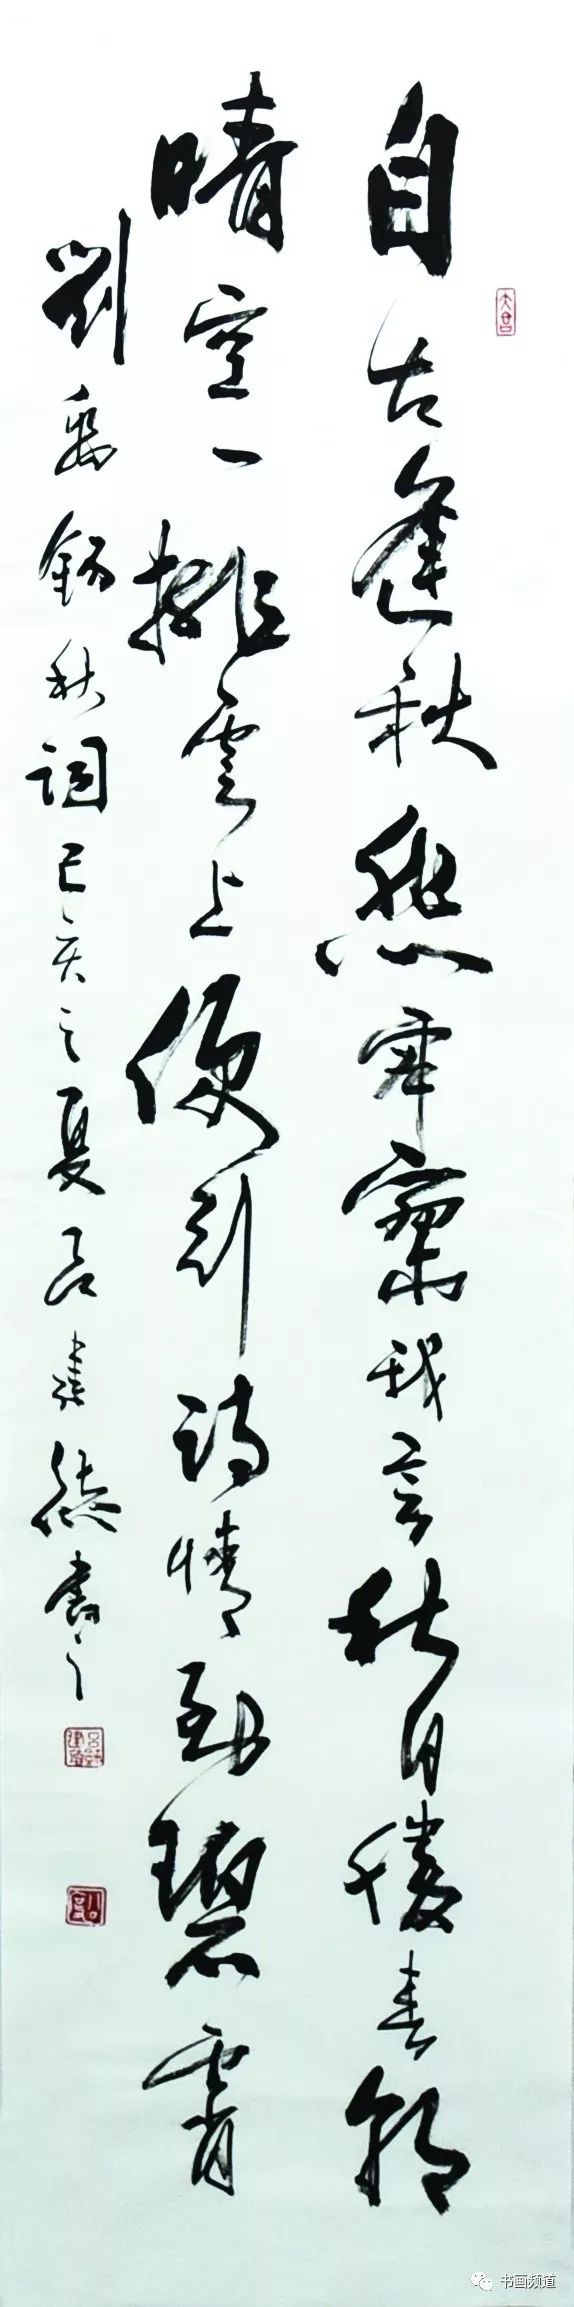 大吕
自古逢秋悲寂寥我言秋日勝春朝
晴空一排雲上便引詩情到碧霄
劉禹錫秋詞己亥之夏吕建書之
书画频道